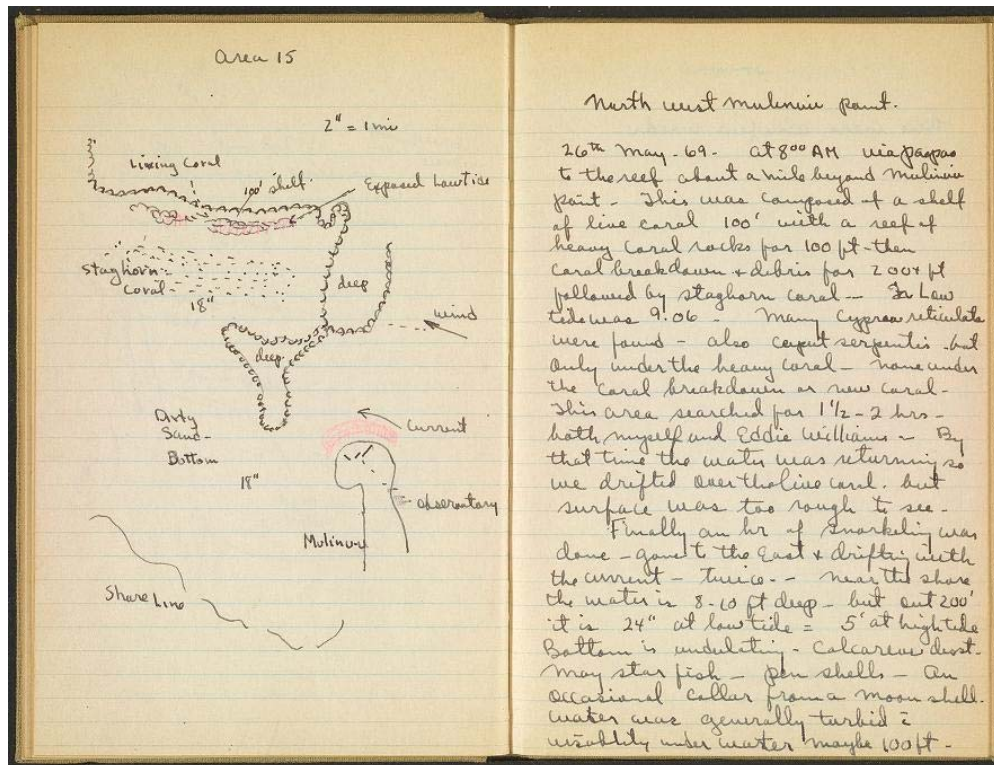 Area 15
2" = 1 mi
Living Coral
100' shelf
Exposed Low Tide
Staghorn
Coral
18"
deep
wind
deep
Dirty
Sand
Bottom
18"
Current
observatory
Mulinuu
Shore Line
North west Mulinuu point.
26th May - 69. at 8 00 AM via paopao
to the reef about a mile beyond Mulinuu
point - This was composed of a shelf
of live coral 100' with a reef of
heavy coral rocks for 100 ft - then
coral breakdown + debris for 200+ ft
followed by staghorn coral - Low
tide was 9:06 - Many Cypraea reticulata
were found - also caput serpentis but
only under the heavy coral - none under
the coral breakdown or new coral -
This area searched for 1 1/2 - 2 hrs -
both myself and Eddie Williams - By
that time the water was returning so
we drifted over the live coral. but
surface was too rough to see -
Finally an hr of snorkeling was
done - gone to the East + drifting with
the current - twice - - near the shore
the water is 8-10 ft deep - but out 200'
it is 24" at low tide = 5' at high tide
Bottom is undulating - Calcareous
May star fish - pen shells - An
occasional collar from a moon shell.
water was generally turbid c̄
visability under water maybe 100 ft -